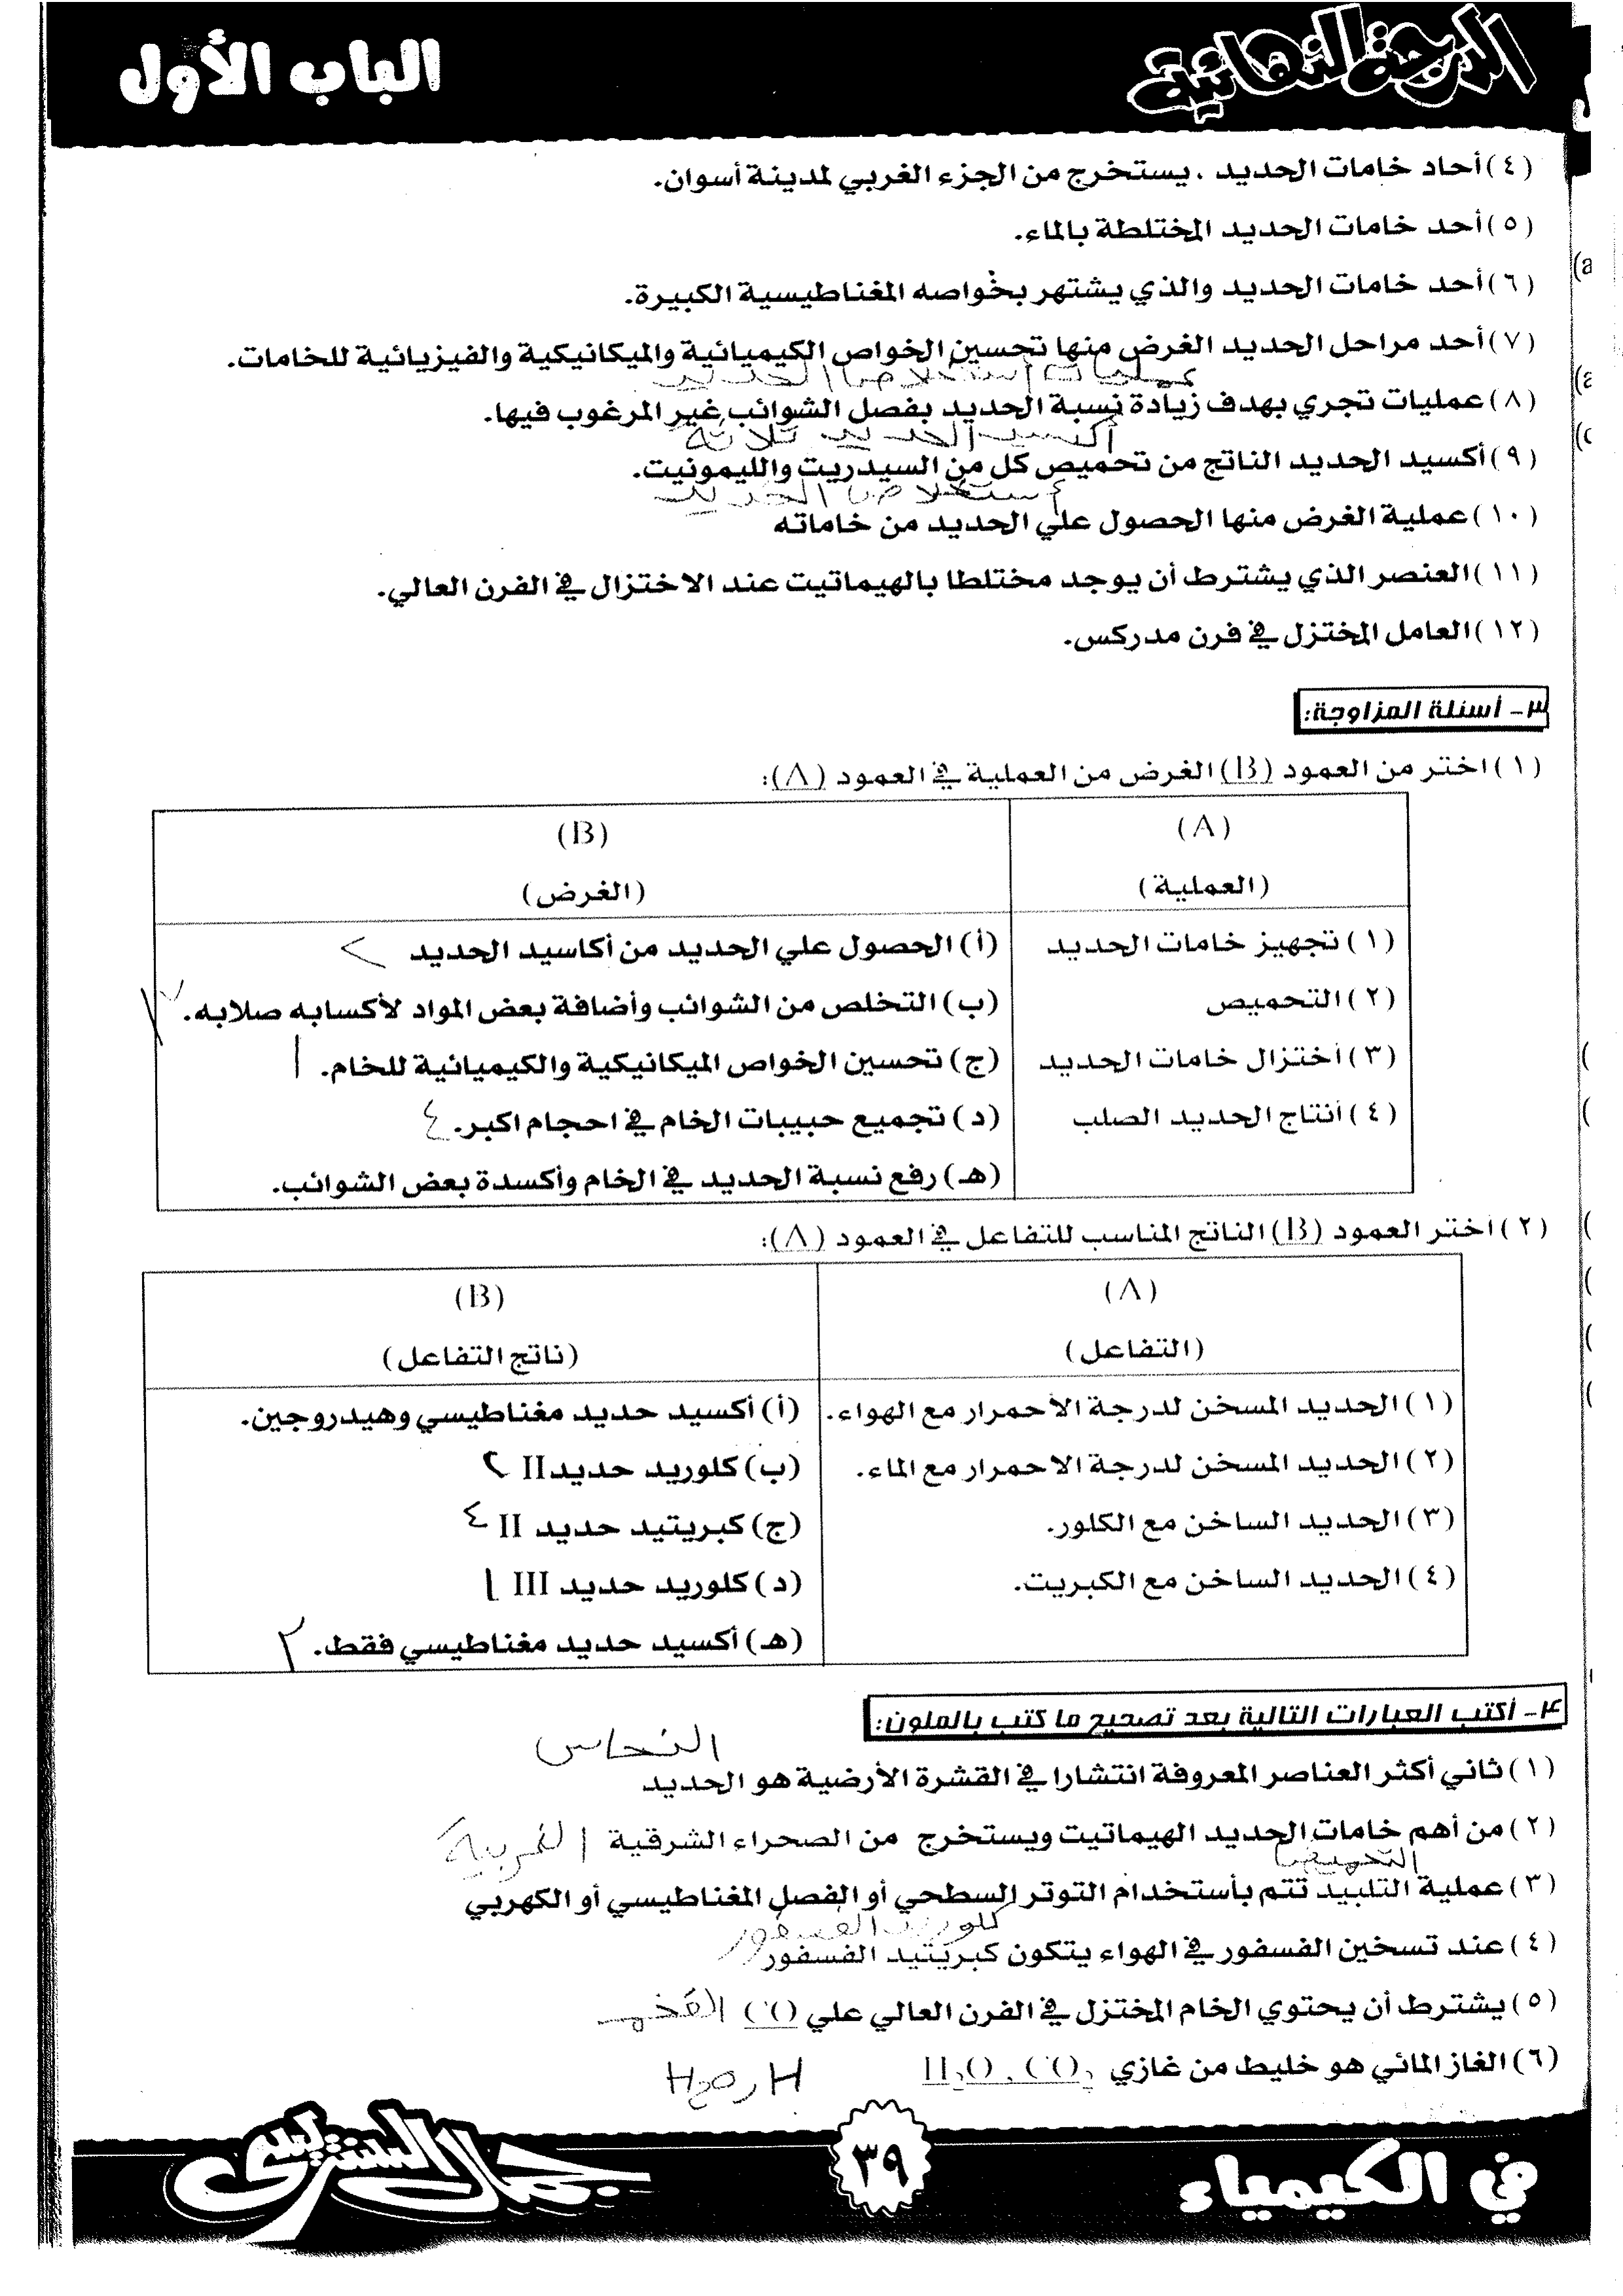 الدرجة النهائية
الباب الأول
(٤) أحاد خامات الحديد . يستخرج من الجزء الغربي لمدينة أسوان.
(٥) أحد خامات الحديد المختلطة بالماء.
(٦) أحد خامات الحديد والذي يشتهر بخواصه المغناطيسية الكبيرة.
(٧) أحد مراحل الحديد الغرض منها تحسين الخواص الكيميائية والميكانيكية والفيزيائية للخامات.
عمليات أستخلاص الحديد
(٨) عمليات تجري بهدف زيادة نسبة الحديد بفصل الشوائب غير المرغوب فيها.
أكسيد الحديد ثلاثة
(٩) أكسيد الحديد الناتج من تحميص كل من السيدريت والليمونيت.
أستخلاص الحديد
(١٠) عملية الغرض منها الحصول علي الحديد من خاماته
(١١) العنصر الذي يشترط أن يوجد مختلطا بالهيماتيت عند الاختزال في الفرن العالي.
(١٢) العامل المختزل في فرن مدركس.
٣- أسئلة المزاوجة:
(١) اختر من العمود (B) الغرض من العملية في العمود (A):
(A) (B)
(العملية) (الغرض)
(١) تجهيز خامات الحديد (أ) الحصول علي الحديد من أكاسيد الحديد
(٢) التحميص (ب) التخلص من الشوائب وأضافة بعض المواد لأكسابه صلابه.
(٣) أختزال خامات الحديد (ج) تحسين الخواص الميكانيكية والكيميائية للخام. ١
(٤) أنتاج الحديد الصلب (د) تجميع حبيبات الخام في احجام اكبر. ٤
(هـ) رفع نسبة الحديد في الخام وأكسدة بعض الشوائب.
(٢) أختر العمود (B) الناتج المناسب للتفاعل في العمود (A):
(A) (B)
(التفاعل) (ناتج التفاعل)
(١) الحديد المسخن لدرجة الأحمرار مع الهواء. (أ) أكسيد حديد مغناطيسي وهيدروجين.
(٢) الحديد المسخن لدرجة الاحمرار مع الماء. (ب) كلوريد حديد II
(٣) الحديد الساخن مع الكلور. (ج) كبريتيد حديد II ٤
(٤) الحديد الساخن مع الكبريت. (د) كلوريد حديد III ١
(هـ) أكسيد حديد مغناطيسي فقط. ٢
٤- أكتب العبارات التالية بعد تصحيح ما كتب بالملون:
النحاس
(١) ثاني أكثر العناصر المعروفة انتشارا في القشرة الأرضية هو الحديد
(٢) من أهم خامات الحديد الهيماتيت ويستخرج من الصحراء الشرقية الغربية
التحميص
(٣) عملية التلبيد تتم بأستخدام التوتر السطحي أو الفصل المغناطيسي أو الكهربي
كلوريد الفسفور
(٤) عند تسخين الفسفور في الهواء يتكون كبريتيد الفسفور
(٥) يشترط أن يحتوي الخام المختزل في الفرن العالي علي CO الفحم
(٦) الغاز المائي هو خليط من غازي H₂O , CO₂
في الكيمياء
٣٩
جمال السنتريسي